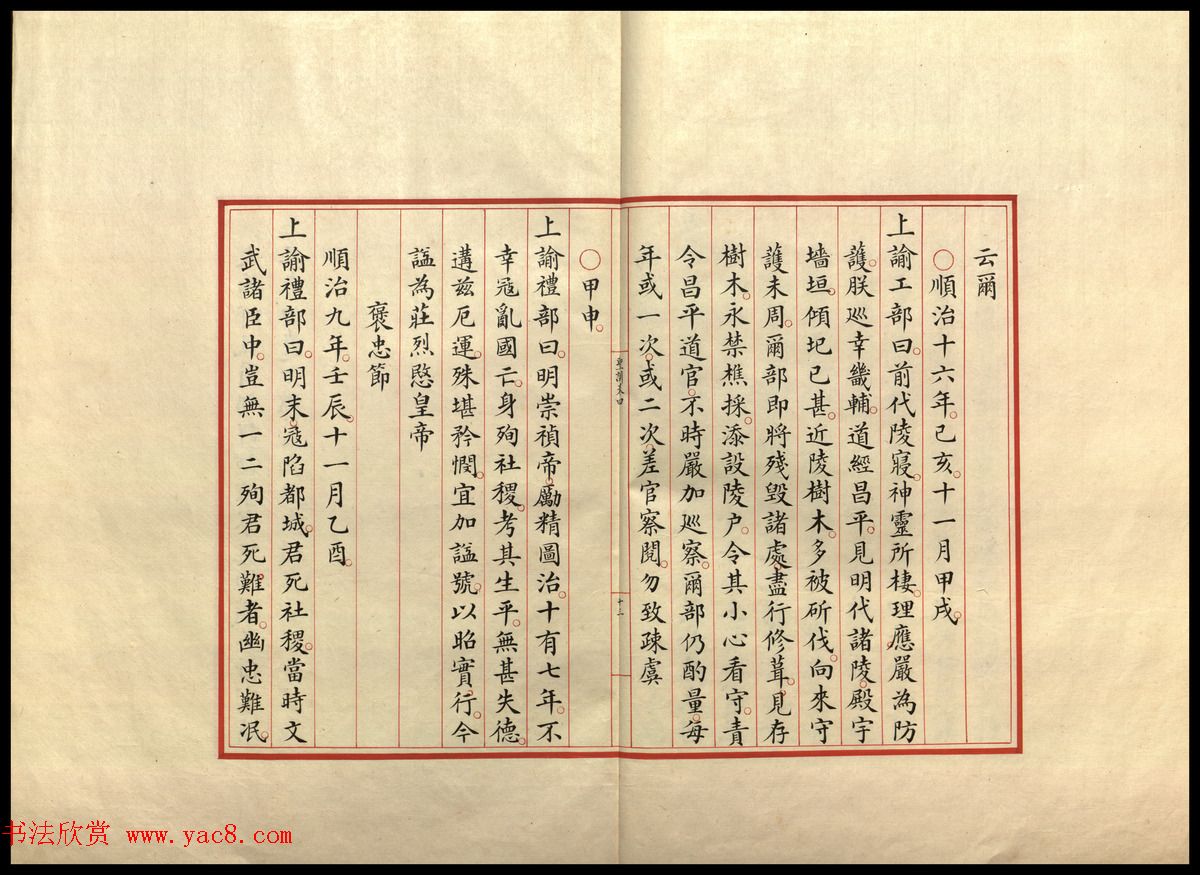 云爾
○順治十六年己亥。十一月甲戌。
上諭工部曰。前代陵寢。神靈所棲。理應嚴為防
護。朕巡幸畿輔。道經昌平。見明代諸陵。殿宇
墻垣。傾圮已甚。近陵樹木。多被斫伐。向來守
護未周。爾部即將殘毀諸處。盡行修葺。見存
樹木。永禁樵採。添設陵戶。令其小心看守。責
令昌平道官。不時嚴加巡察。爾部仍酌量。每
年或一次。或二次。差官察閱。勿致疎虞
聖訓卷四
十三
○甲申。
上諭禮部曰。明崇禎帝。勵精圖治。十有七年。不
幸寇亂國亡。身殉社稷。考其生平。無甚失德。
遘茲厄運。殊堪矜憫。宜加謚號。以昭實行。今
謚為莊烈愍皇帝
褒忠節
順治九年。壬辰。十一月乙酉。
上諭禮部曰。明末。寇陷都城。君死社稷。當時文
武諸臣中。豈無一二殉君死難者。幽忠難泯。
书法欣赏 www.yac8.com